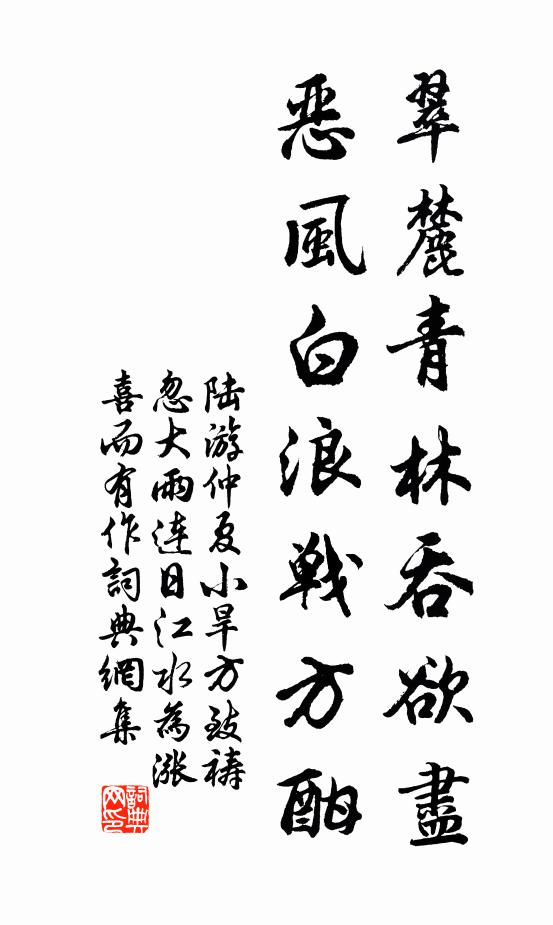 翠麓青林吞欲盡
惡風白浪戰方酣
陆游仲夏小旱方致禱
忽大雨連日江水為漲
喜而有作詞典網集
詞典網印